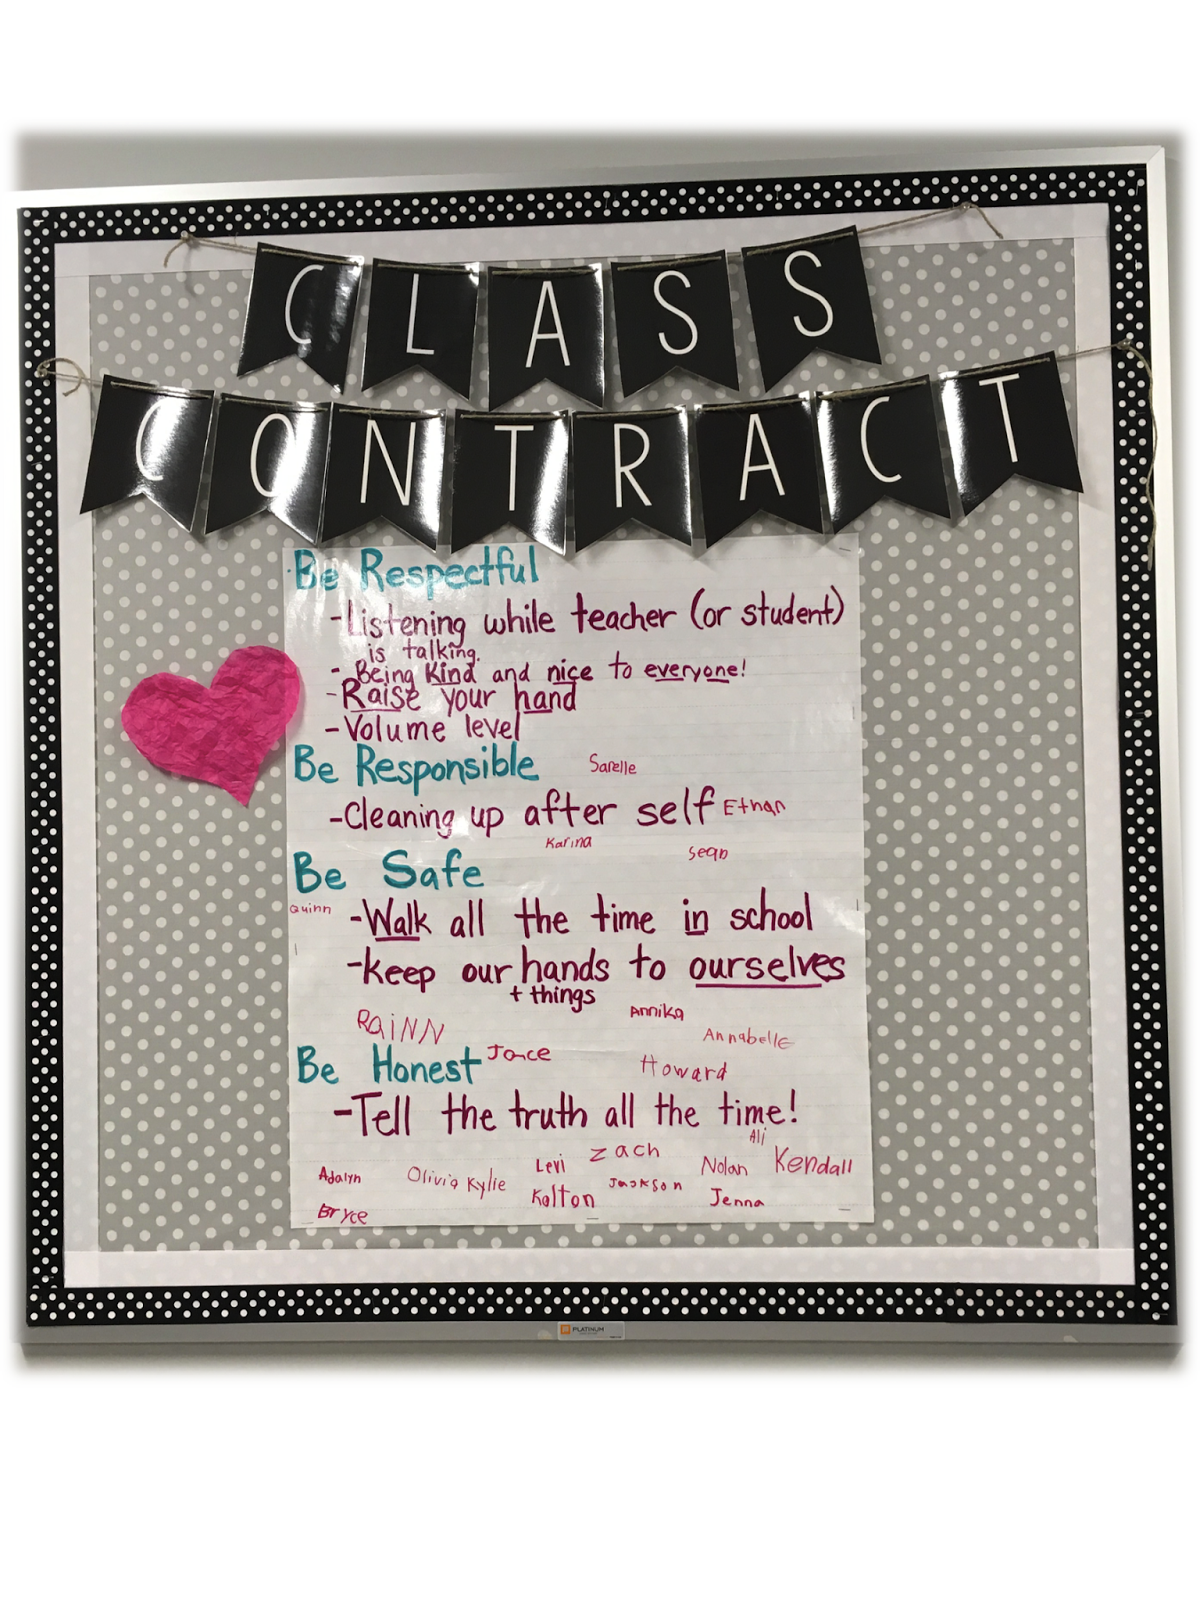 CLASS
CONTRACT
Be Respectful
-Listening while teacher (or student)
is talking.
- Being Kind and nice to everyone!
-Raise your hand
-Volume level
Be Responsible Sarelle
-Cleaning up after self Ethan
Karina
Sean
Be Safe
Quinn
-Walk all the time in school
-Keep our hands to ourselves
+ things
RAiNN
Annika
Annabelle
Be Honest Jance
Howard
-Tell the truth all the time!
Ali
Zach
Levi
Nolan
Kendall
Adalyn
Olivia
Kylie
Jackson
Kolton
Jenna
Bryce
PLATINUM